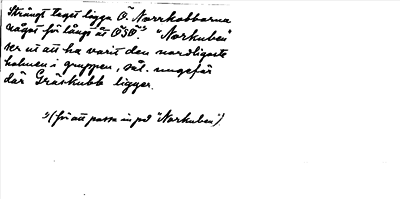 Strängt taget ligga Ö. Norrkobbarna
något för långt åt ÖSÖ.ˣ⁾ "Norkuben"
ser ut att ha varit den nordligaste
holmen i gruppen, sål. ungefär
där Gråskubb ligger.
ˣ⁾(för att passa in på "Norkuben")